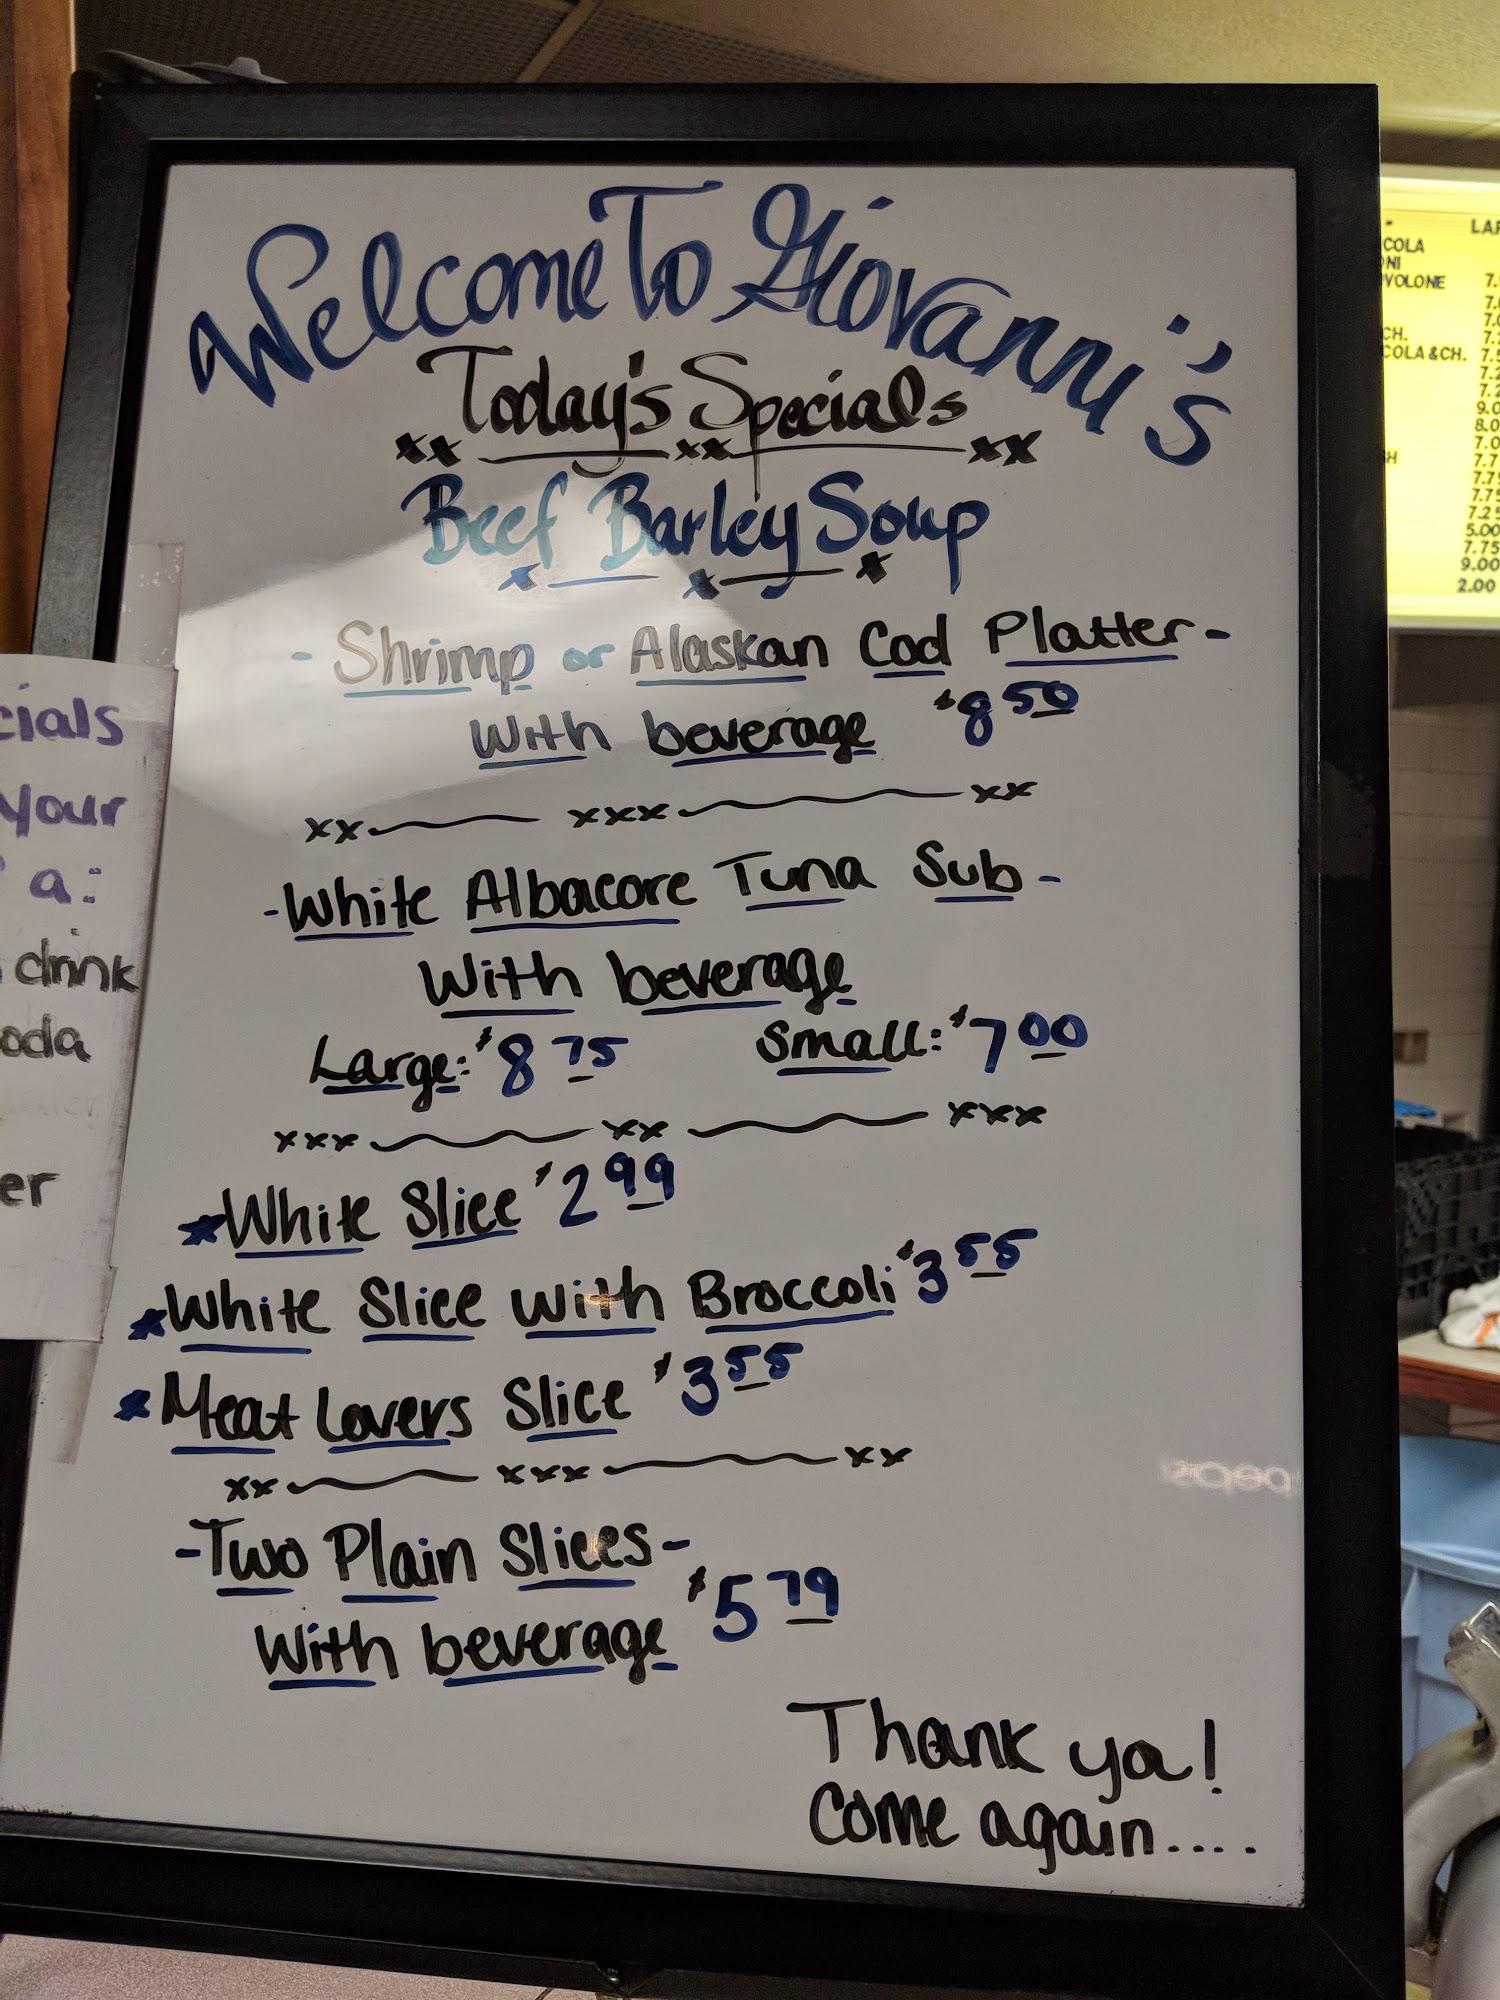 Welcome To Giovanni's
Today's Specials
xx xx xx
Beef Barley Soup
x x x
- Shrimp or Alaskan Cod Platter -
With beverage $8 50
xx xxx xx
- White Albacore Tuna Sub -
With beverage
Large: $8 75 Small: $7 00
xxx xx xxx
White Slice $2 99
White Slice with Broccoli $3 55
Meat Lovers Slice $3 55
xx xxx xx
- Two Plain Slices -
With beverage $5 79
Thank ya!
Come again.....
cials
your
a:
drink
oda
er
COLA
VOLONE
CH.
COLA & CH.
9.0
8.0
7.0
7.7
7.75
7.75
7.25
5.00
7.75
9.00
2.00